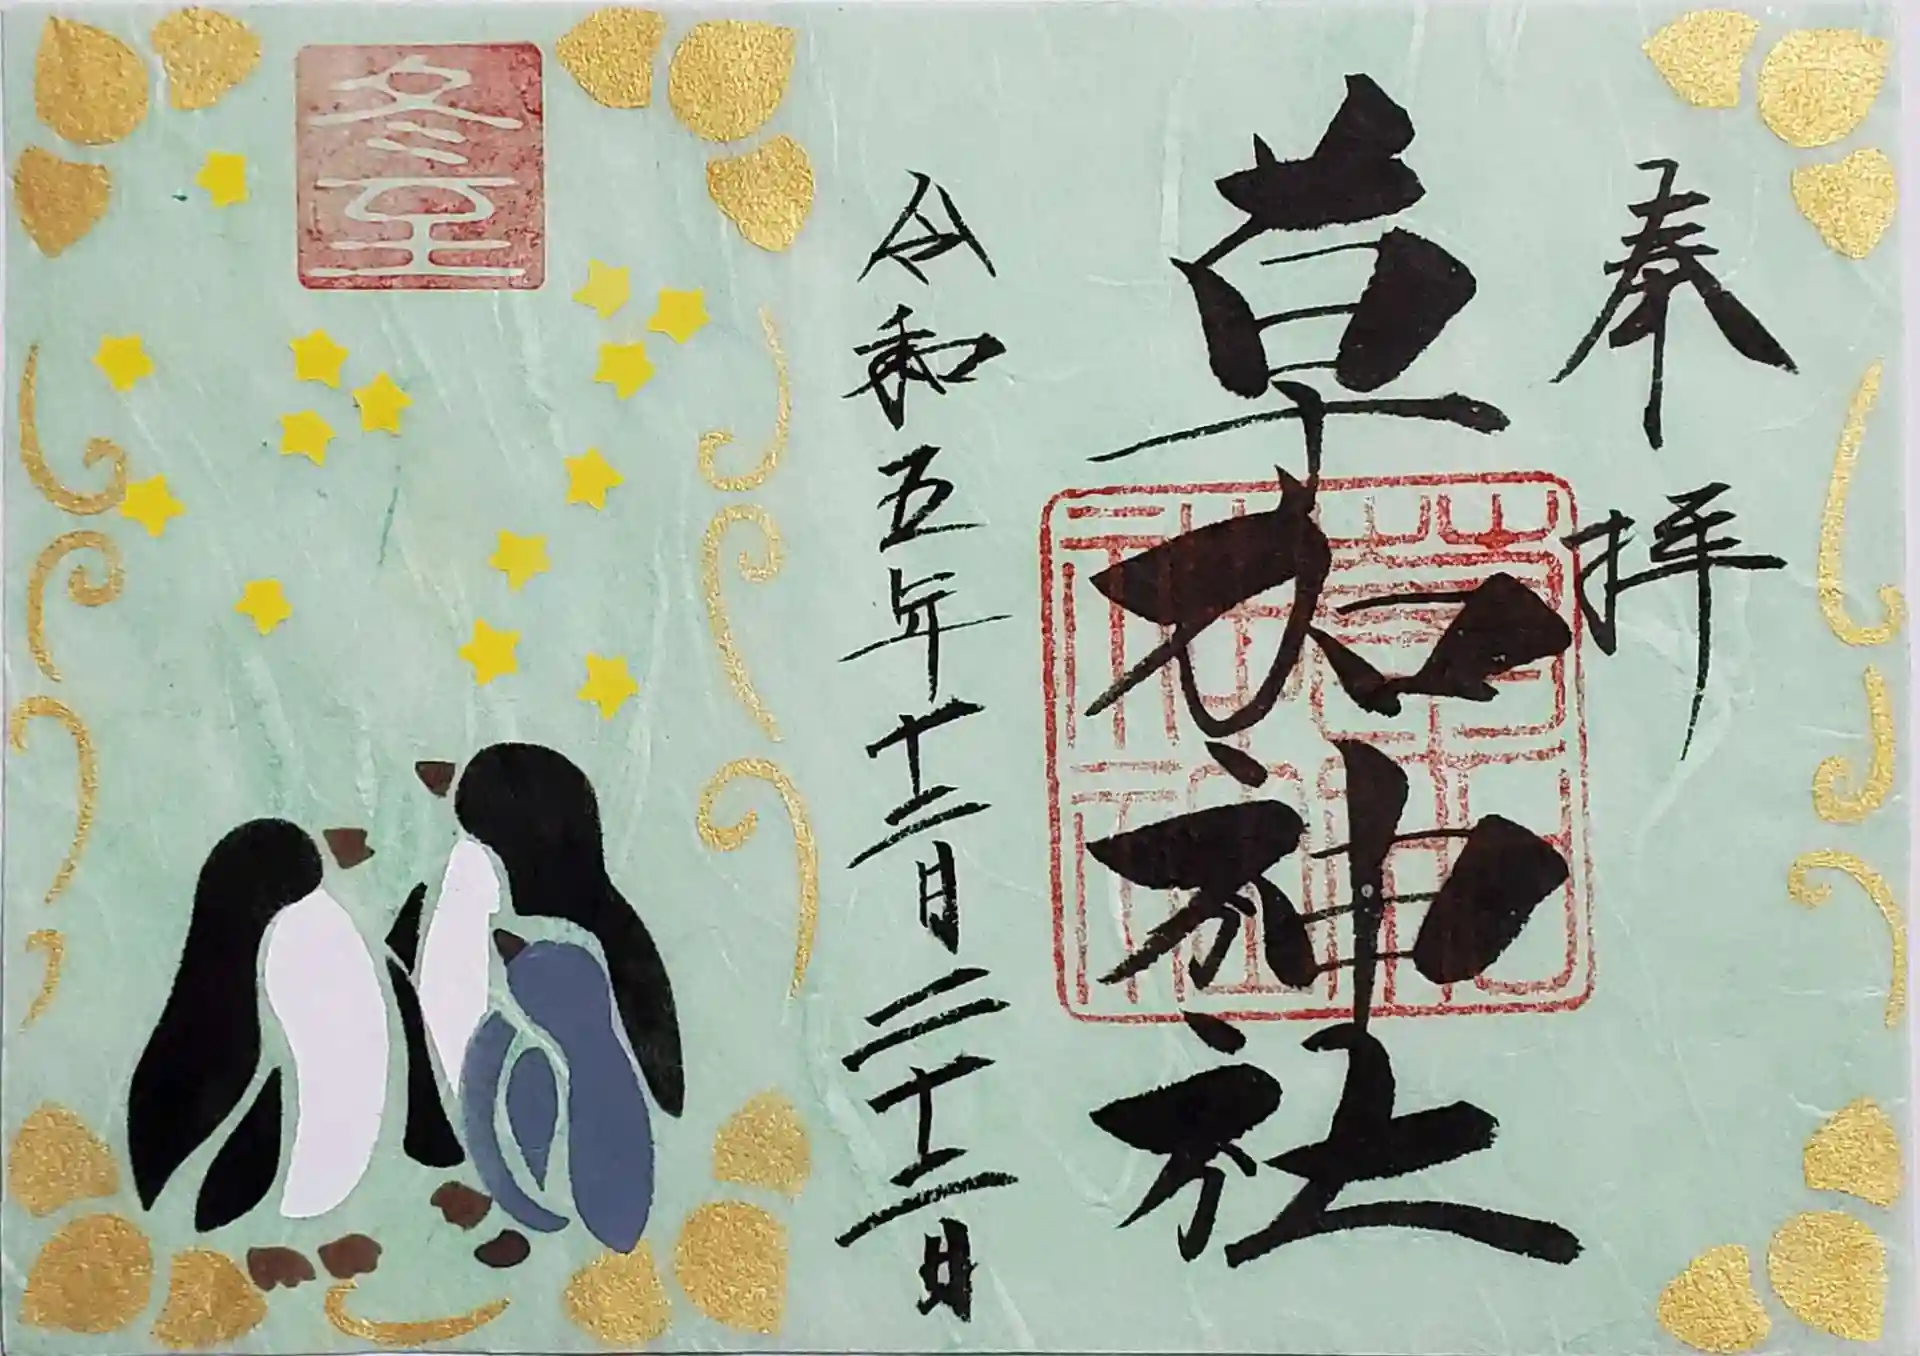 奉拝
草加神社
令和五年十二月二十二日
冬至